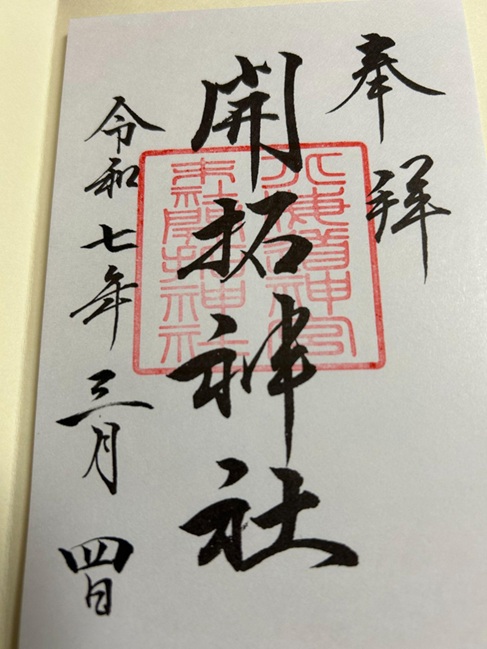 奉拝
開拓神社
北海道神宮
末社開拓神社
令和七年三月四日